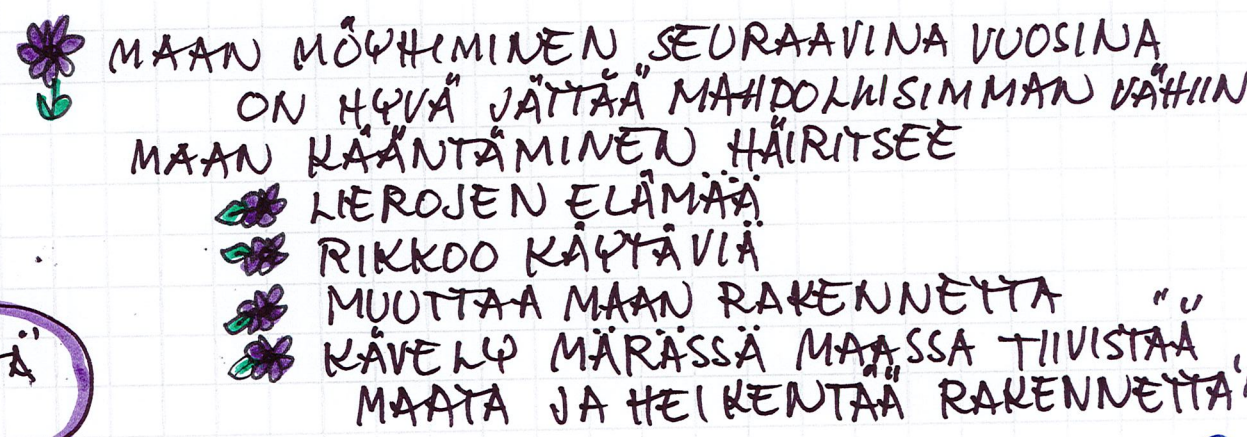 MAAN MÖYHIMINEN SEURAAVINA VUOSINA
ON HYVÄ JÄTTÄÄ MAHDOLLISIMMAN VÄHIIN
MAAN KÄÄNTÄMINEN HÄIRITSEE
LIEROJEN ELÄMÄÄ
RIKKOO KÄYTÄVIÄ
MUUTTAA MAAN RAKENNETTA
KÄVELY MÄRÄSSÄ MAASSA TIIVISTÄÄ
Ä
MAATA JA HEIKENTÄÄ RAKENNETTA